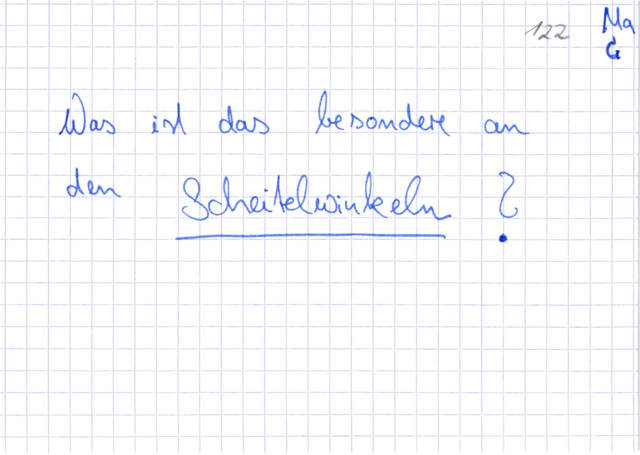 122 Ma
G
Was ist das besondere an
den Scheitelwinkeln ?